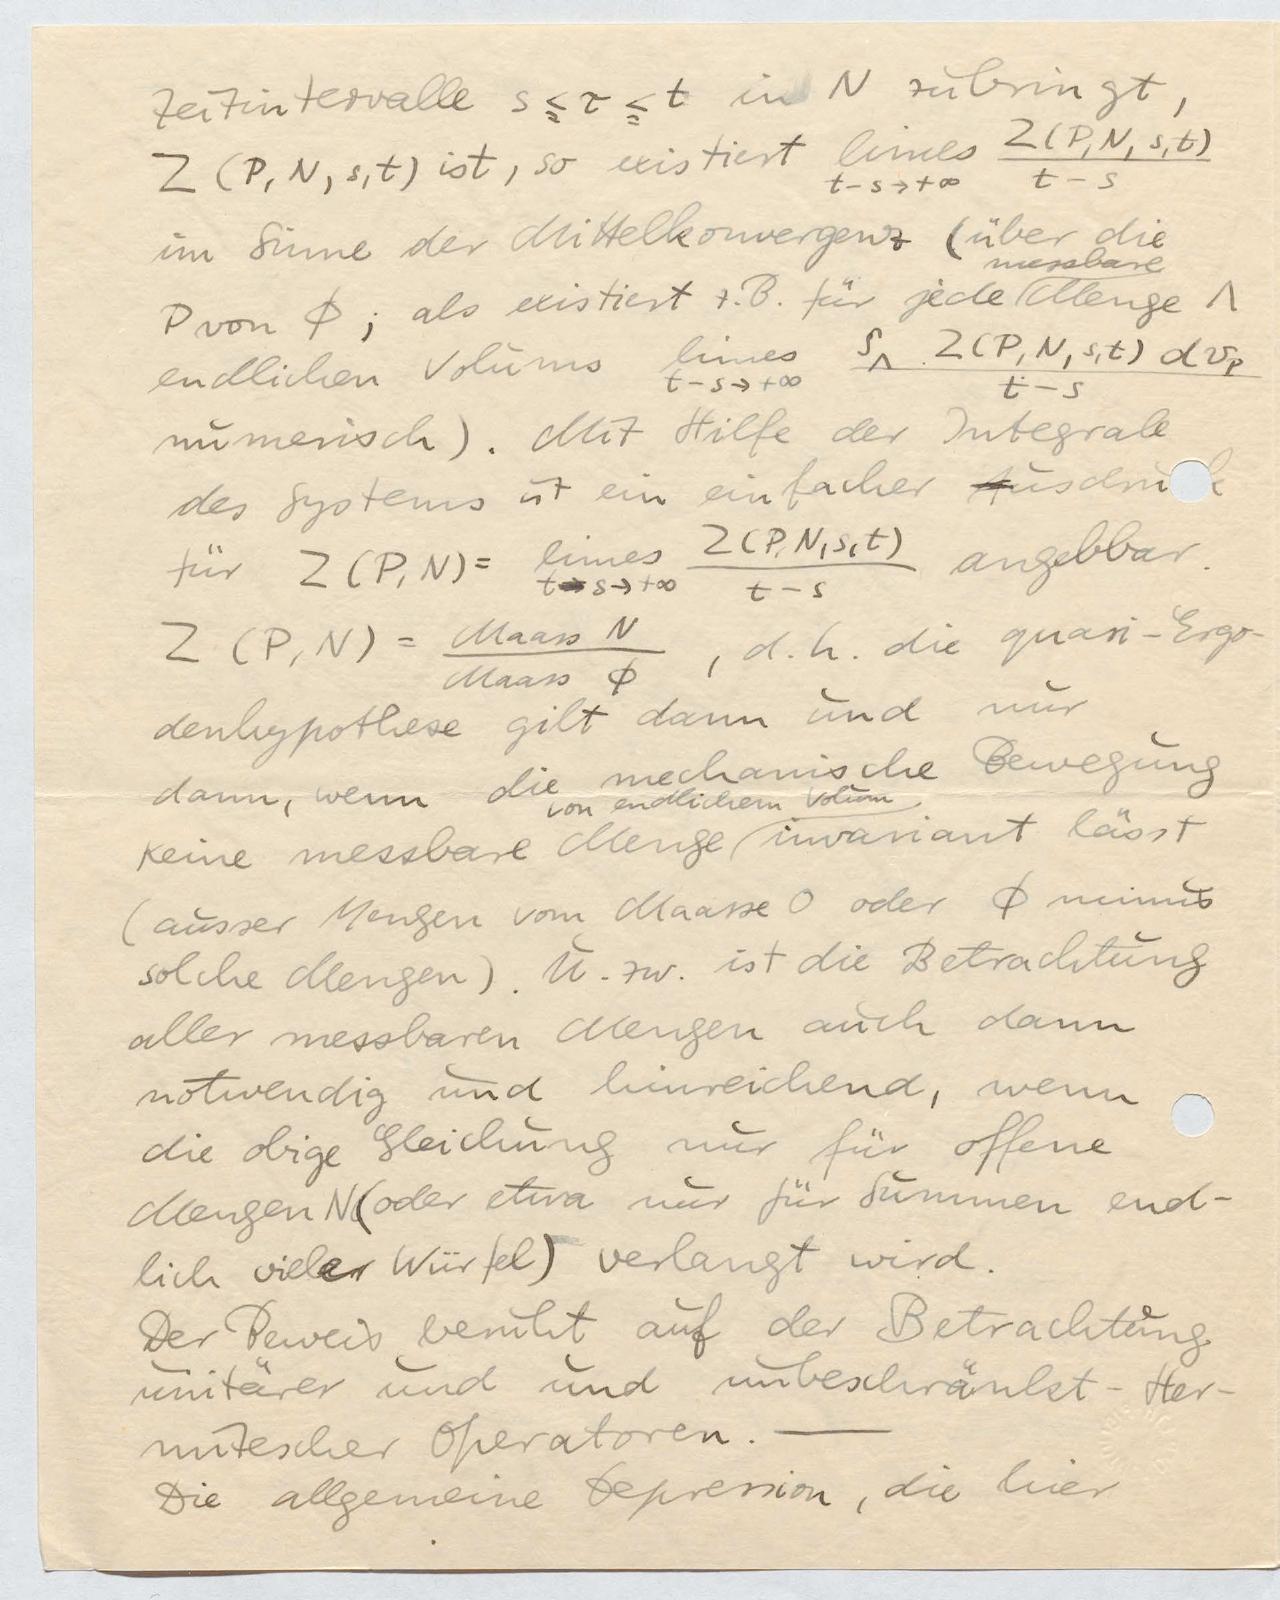 Zeitintervalle s ≦ τ ≦ t in N zubringt,
Z (P, N, s, t) ist, so existiert limes t-s→+∞ Z(P, N, s, t) / t-s
im Sinne der Mittelkonvergenz (über die
P von Φ; als existiert z.B. für jede messbare Menge Λ
endlichen Volums limes t-s→+∞ ∫Λ Z(P, N, s, t) dv_P / t-s
numerisch). Mit Hilfe der Integrale
des Systems ist ein einfacher Ausdruck
für Z (P, N) = limes t-s→+∞ Z(P, N, s, t) / t-s angebbar.
Z (P, N) = Maass N / Maass Φ, d.h. die quasi-Ergo-
denhypothese gilt dann und nur
dann, wenn die mechanische Bewegung
keine messbare Menge von endlichem Volum invariant lässt
(ausser Mengen vom Maasse 0 oder Φ minus
solche Mengen). U. zw. ist die Betrachtung
aller messbaren Mengen auch dann
notwendig und hinreichend, wenn
die obige Gleichung nur für offene
Mengen N (oder etwa nur für Summen end-
lich vieler Würfel) verlangt wird.
Der Beweis beruht auf der Betrachtung
unitärer und und unbeschränkt-Her-
mitescher Operatoren. —
Die allgemeine Depression, die hier